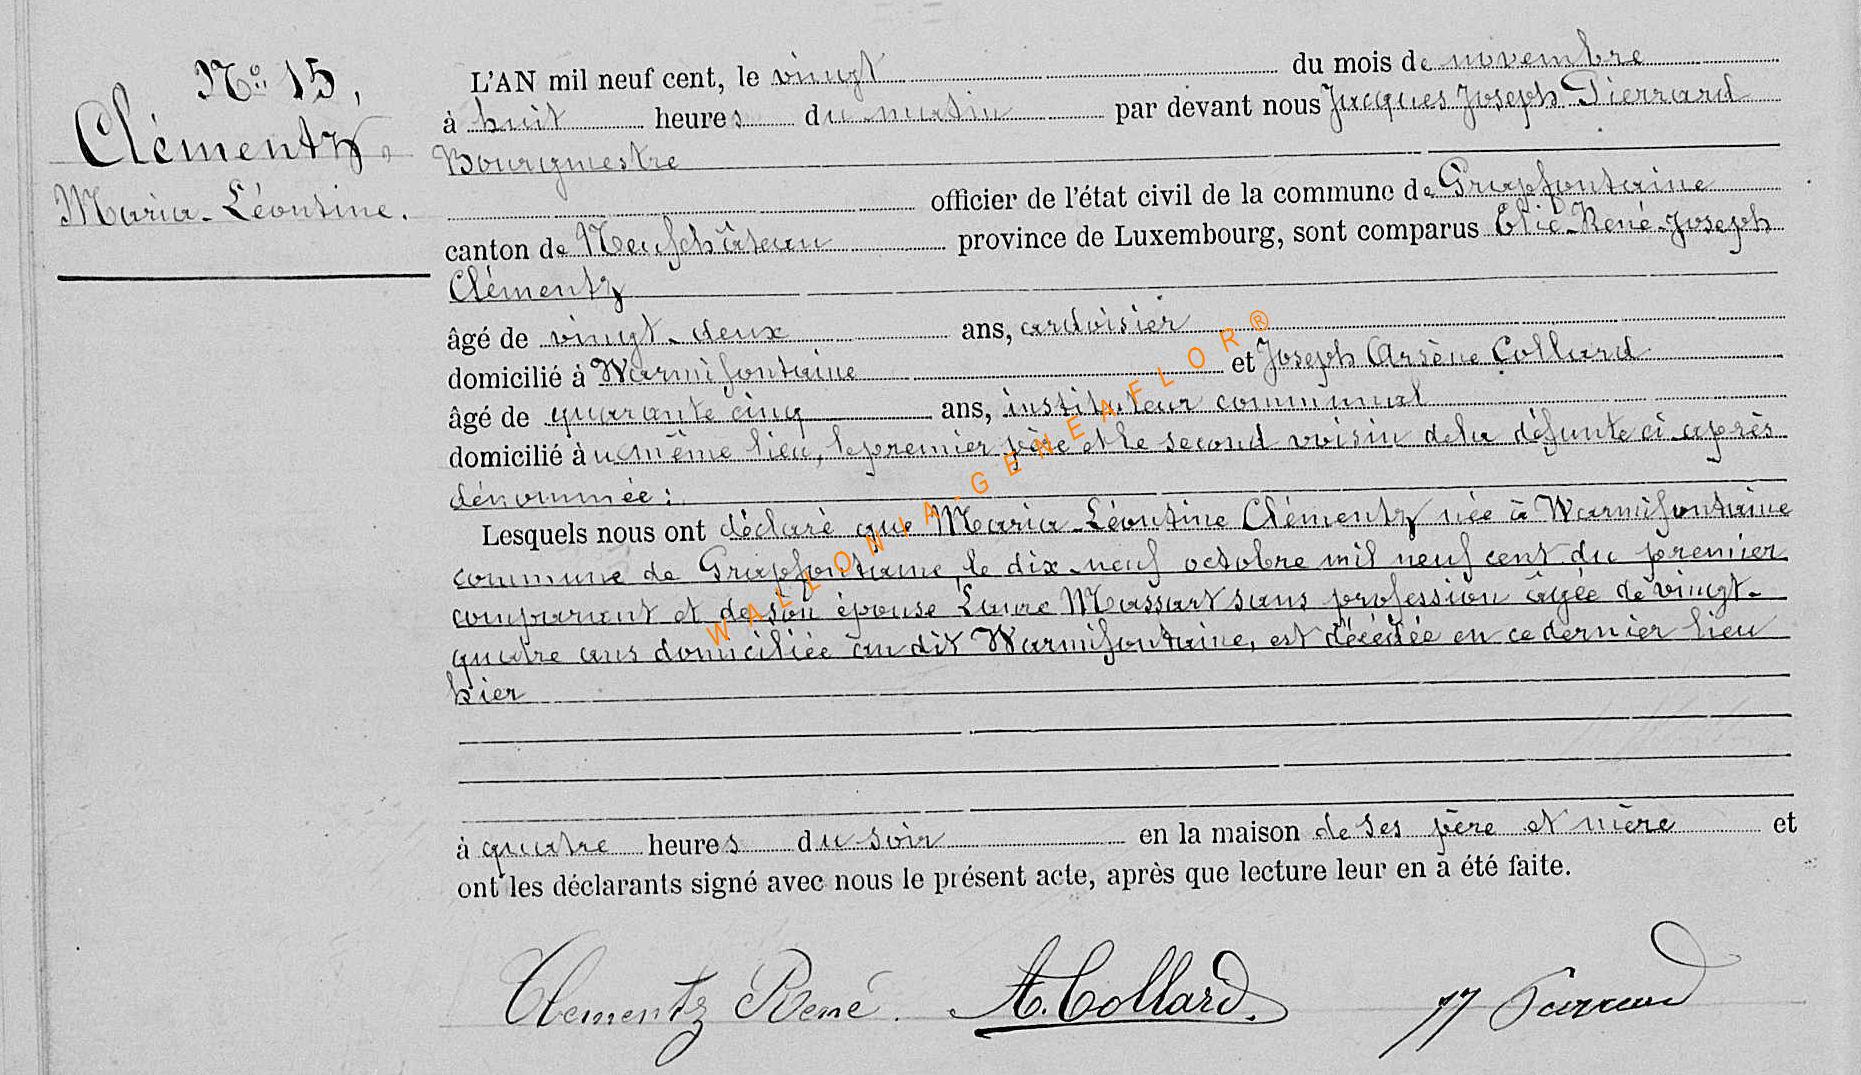 N° 15,
Clémentz,
Maria-Léontine.
L'AN mil neuf cent, le vingt du mois de novembre
à huit heures du matin par devant nous Jacques Joseph Pierrard
Bourgmestre
officier de l'état civil de la commune de Grapfontaine
canton de Neufchâteau province de Luxembourg, sont comparus Elie-René-Joseph
Clémentz
âgé de vingt-deux ans, ardoisier
domicilié à Warmifontaine et Joseph Arsène Collard
âgé de quarante cinq ans, instituteur communal
domicilié àu même lieu, le premier père et le second voisin de la défunte ci après
dénommée:
Lesquels nous ont déclaré que Maria-Léontine Clémentz née à Warmifontaine
commune de Grapfontaine, le dix-neuf octobre mil neuf cent du premier
comparant et de son épouse Laure Massart sans profession âgée de vingt-
quatre ans domiciliée au dit Warmifontaine, est décédée en ce dernier lieu
hier
à quatre heures du soir en la maison de ses père et mère et
ont les déclarants signé avec nous le présent acte, après que lecture leur en a été faite.
Clementz René. A. Collard. JJ Pierrard
WALLONIA-GENEAFLOR®